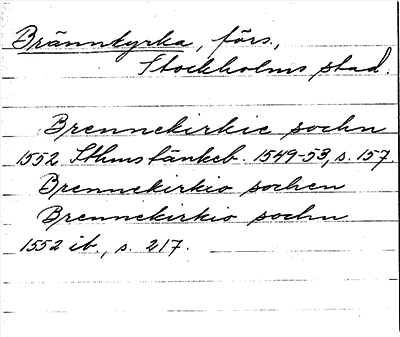 Brännkyrka, förs.,
Stockholms stad.
Brennekirkie sochn
1552 Sthms tänkeb. 1549-53, s. 157.
Brennekirkio sochen
Brennekirkio sochn
1552 ib., s. 217.